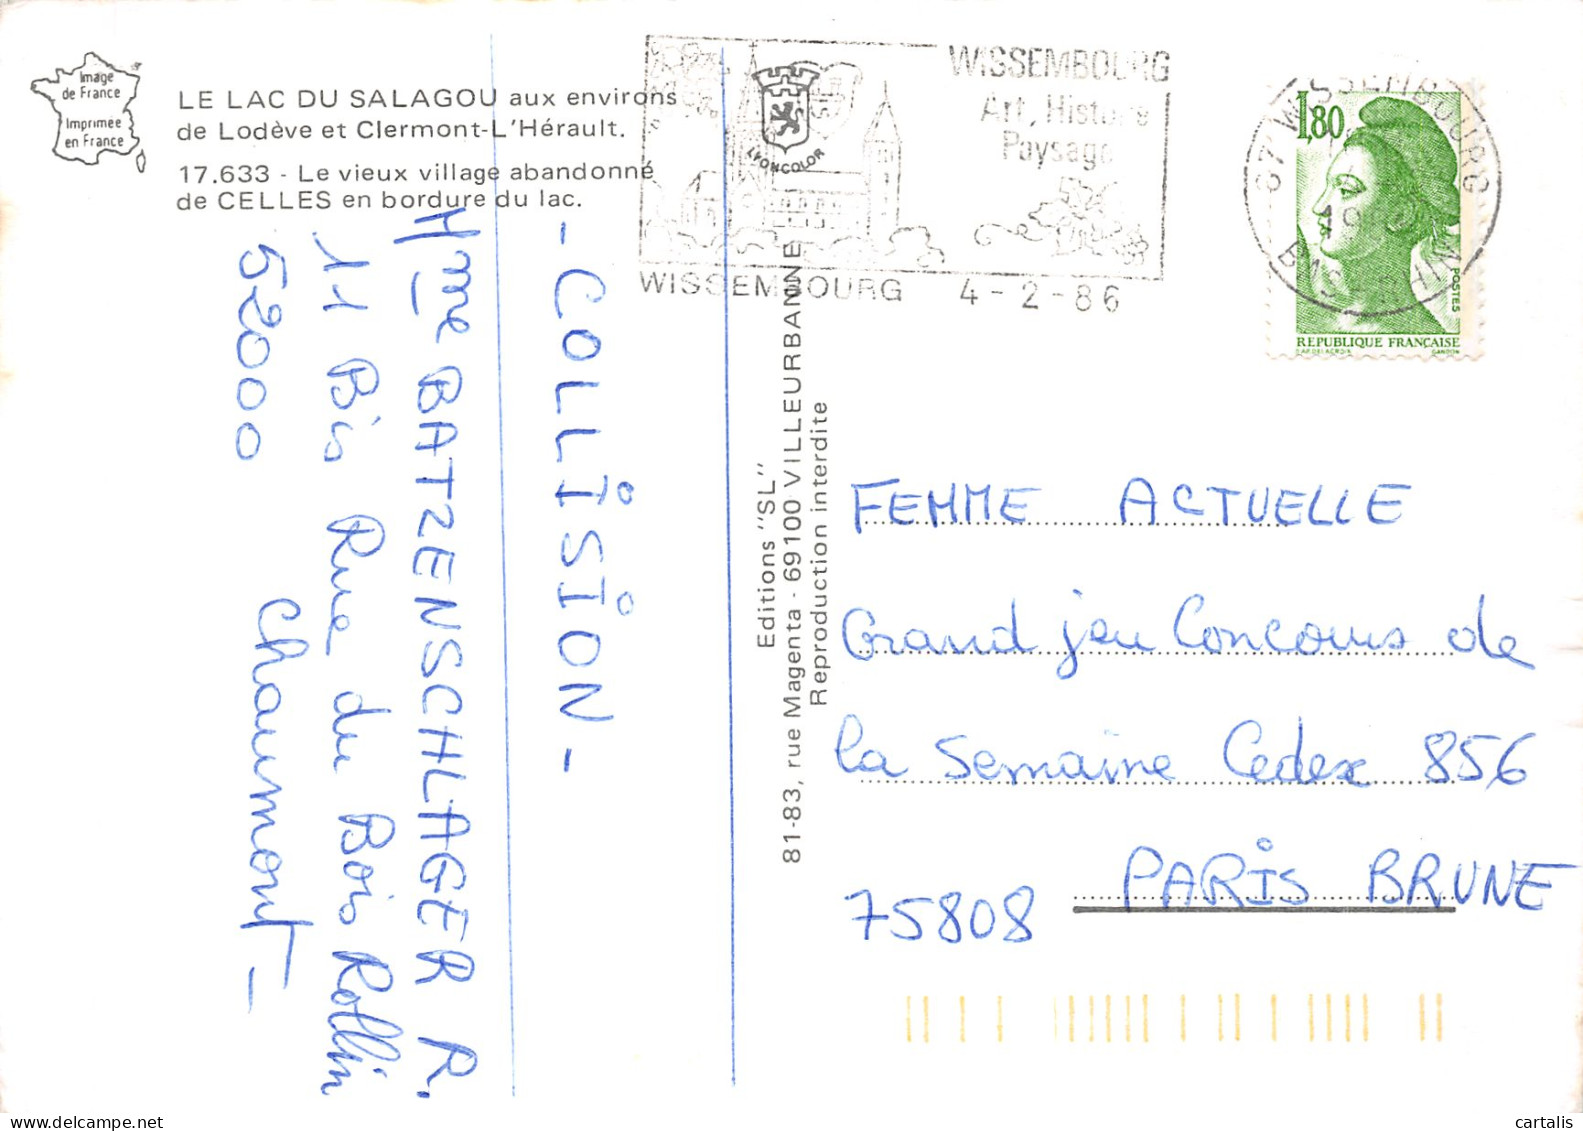 Image
de France
Imprimée
en France
LE LAC DU SALAGOU aux environs
de Lodève et Clermont-L'Hérault.
17.633 - Le vieux village abandonné
de CELLES en bordure du lac.
LYONCOLOR
WISSEMBOURG
Art, Histoire
Paysage
WISSEMBOURG 4-2-86
67 WISSEMBOURG
BAS-RHIN
1,80
POSTES
REPUBLIQUE FRANÇAISE
GANDON
- COLLISION -
Mme BATZENSCHLAGER R.
11 Bis Rue du Bois Rollin
52000 Chaumont -
Editions "SL"
81-83, rue Magenta - 69100 VILLEURBANNE
Reproduction interdite
FEMME ACTUELLE
Grand jeu Concours de
la Semaine Cedex 856
75808 PARIS BRUNE
cartalis